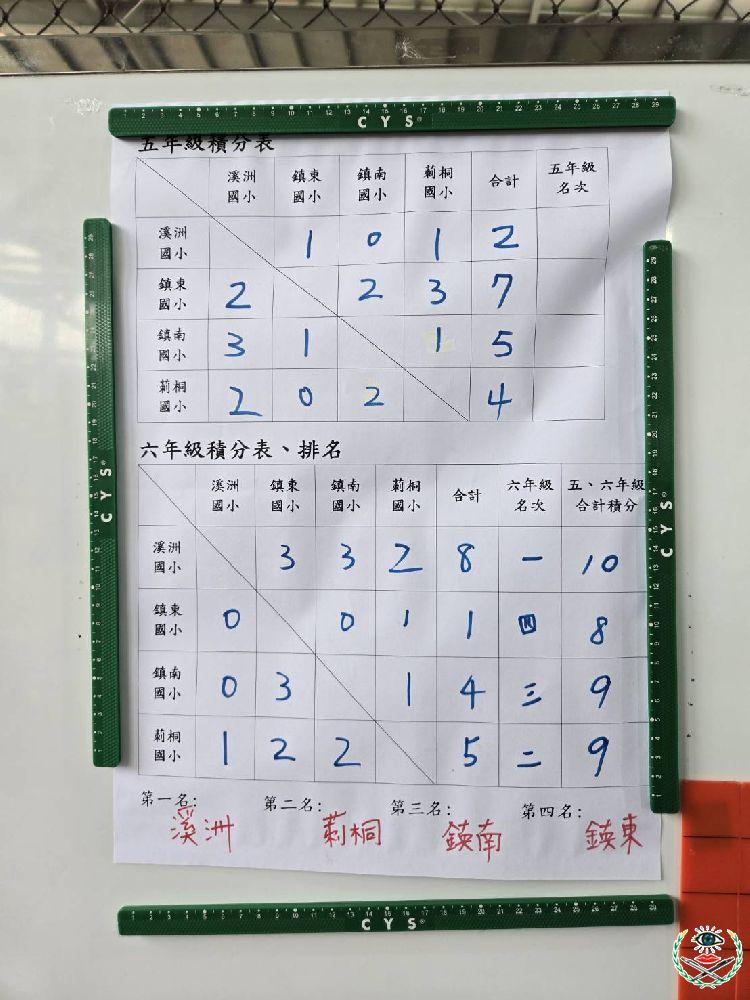 CYS®
五年級積分表
溪洲國小 鎮東國小 鎮南國小 莿桐國小 合計 五年級名次
溪洲國小 1 0 1 2
鎮東國小 2 2 3 7
鎮南國小 3 1 1 5
莿桐國小 2 0 2 4
六年級積分表、排名
溪洲國小 鎮東國小 鎮南國小 莿桐國小 合計 六年級名次 五、六年級合計積分
溪洲國小 3 3 2 8 一 10
鎮東國小 0 0 1 1 四 8
鎮南國小 0 3 1 4 三 9
莿桐國小 1 2 2 5 二 9
第一名: 溪洲 第二名: 莿桐 第三名: 鎮南 第四名: 鎮東
CYS®
CYS®
CYS®